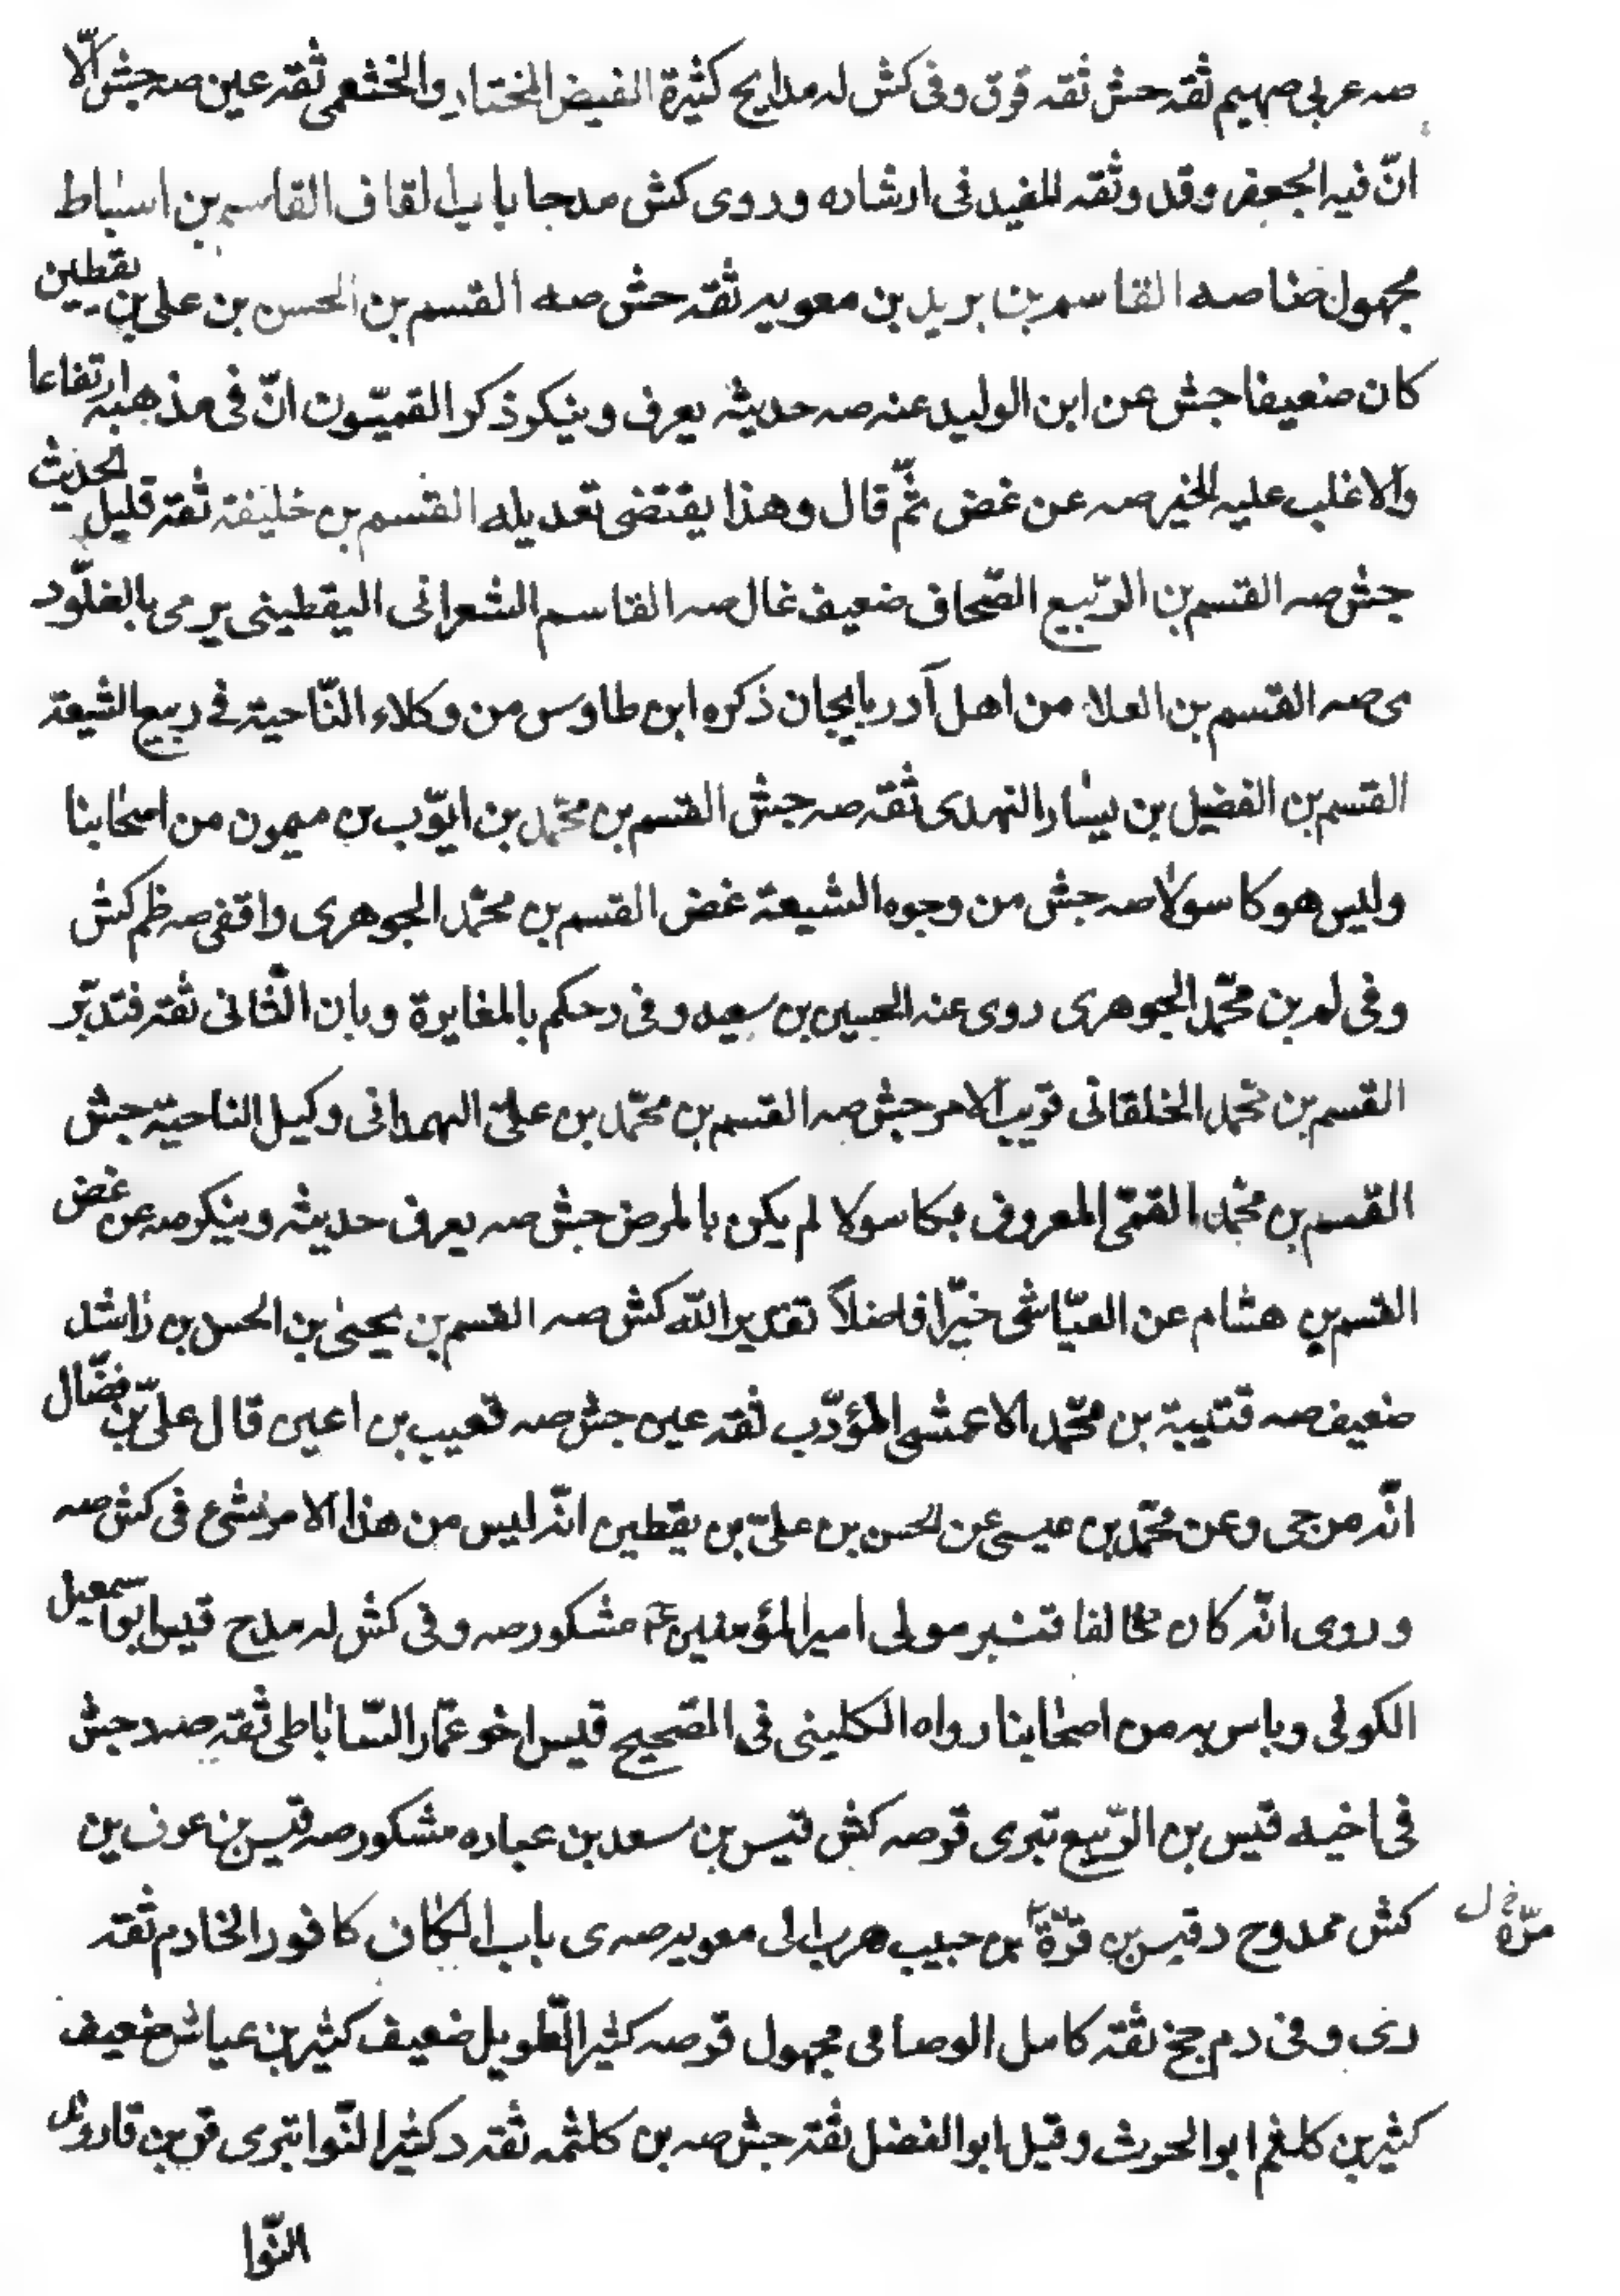 صه عربى صميم ثقه جش ثقه قوق وفى كش له مدايح كثيرة الفيض المختار والخثعمى ثقه عين صه جش الّا
انّ فيه الجعفى وقد وثقه المفيد فى ارشاده وروى كش مدحا باب القاف القاسم بن اسباط
مجهول صه القاسم بن بريد بن معويه ثقه جش صه القسم بن الحسن بن على بن يقطين
كان ضعيفا جش عن ابن الوليد عنه صه حديثه يعرف وينكر ذكر القميّون انّ فى مذهبه ارتفاعا
والاغلب عليه الخير صه عن غض ثمّ قال وهذا يقتضى تعديله القسم بن خليفه ثقة قليل الحديث
جش صه القسم بن الرّبيع الصّحاف ضعيف غال صه القاسم الشعرانى اليقطينى يرمى بالغلّو د
ى صه القسم بن العلا من اهل آدربايجان ذكره ابن طاوس من وكلاء النّاحية فى ربيع الشيعة
القسم بن الفضيل بن يسار النهدى ثقه صه جش القسم بن محمّد بن ايّوب بن ميمون من اصحابنا
وليس هو كاسولا صه جش من وجوه الشيعة غض القسم بن محمّد الجوهرى واقفى صه ظم كش
وفى لم بن محمّد الجوهرى روى عنه الحسين بن سعيد وفى د حكم بالمغايرة وبان الثّانى ثقة فتدبّر
القسم بن محمّد الخلقانى قريب الامر جش صه القسم بن محمّد بن علىّ الهمدانى وكيل الناحية جش
القسم بن محمّد القمّى المعروف بكاسولا لم يكن بالمرضى جش صه يعرف حديثه وينكر صه عن غض
القسم بن هشام عن العيّاشى خيّرا فاضلاً تقديرا لله كش صه القسم بن يحيى بن الحسن بن راشد
ضعيف صه قتيبة بن محمّد الاعمشى المؤدّب ثقه عين جش صه قعيب بن اعين قال علىّ بن فضّال
انّه مرجى وعن محمّد بن عيسى عن الحسن بن علىّ بن يقطين انّه ليس من هذا الامر فى شئ كش صه
وروى انّه كان مخالفا قنبر مولى امير المؤمنين ع مشكور صه وفى كش له مدح قيس ابو اسمعيل
الكوفى وباس به من اصحابنا رواه الكلينى فى الصّحيح قيس اخو عمّار السّاباطى ثقه صه جش
فى اخيه قيس بن الرّبيع تبرى قر صه كش قيس بن سعد بن عباده مشكور صه قيس بن عوف بن
كش ممدوح د قيس بن قرّة بن حبيب هرب الى معويه صه ى باب الكاف كافور الخادم ثقه
مرّه خ ل
دى وفى د م جخ ثقة كامل الوصافى مجهول قر صه كثير الطّويل ضعيف كثير بن عياش ضعيف
كثير بن كلثم ابو الحرث وقيل ابو الفضل ثقة جش صه بن كلثمه ثقه د كثير النّوا تبرى قر بن قاروند
النّوا